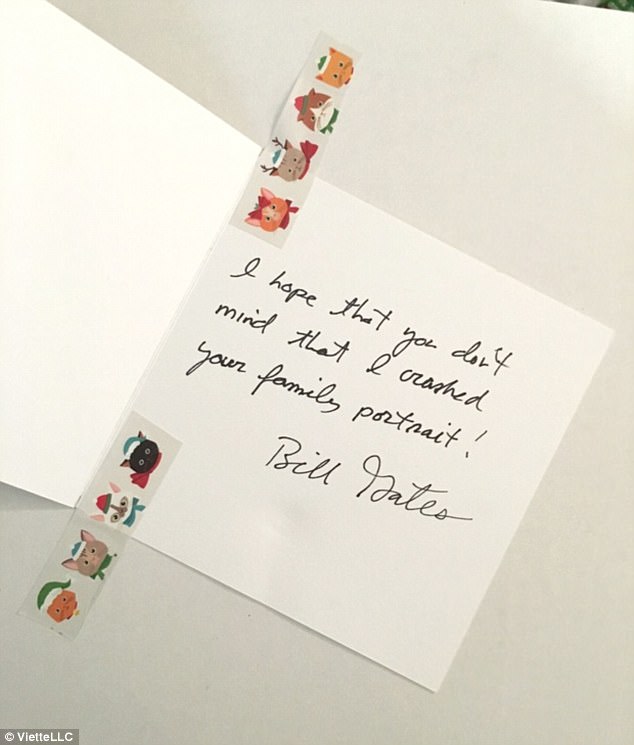 I hope that you don't
mind that I crashed
your family portrait!
Bill Gates
© VietteLLC